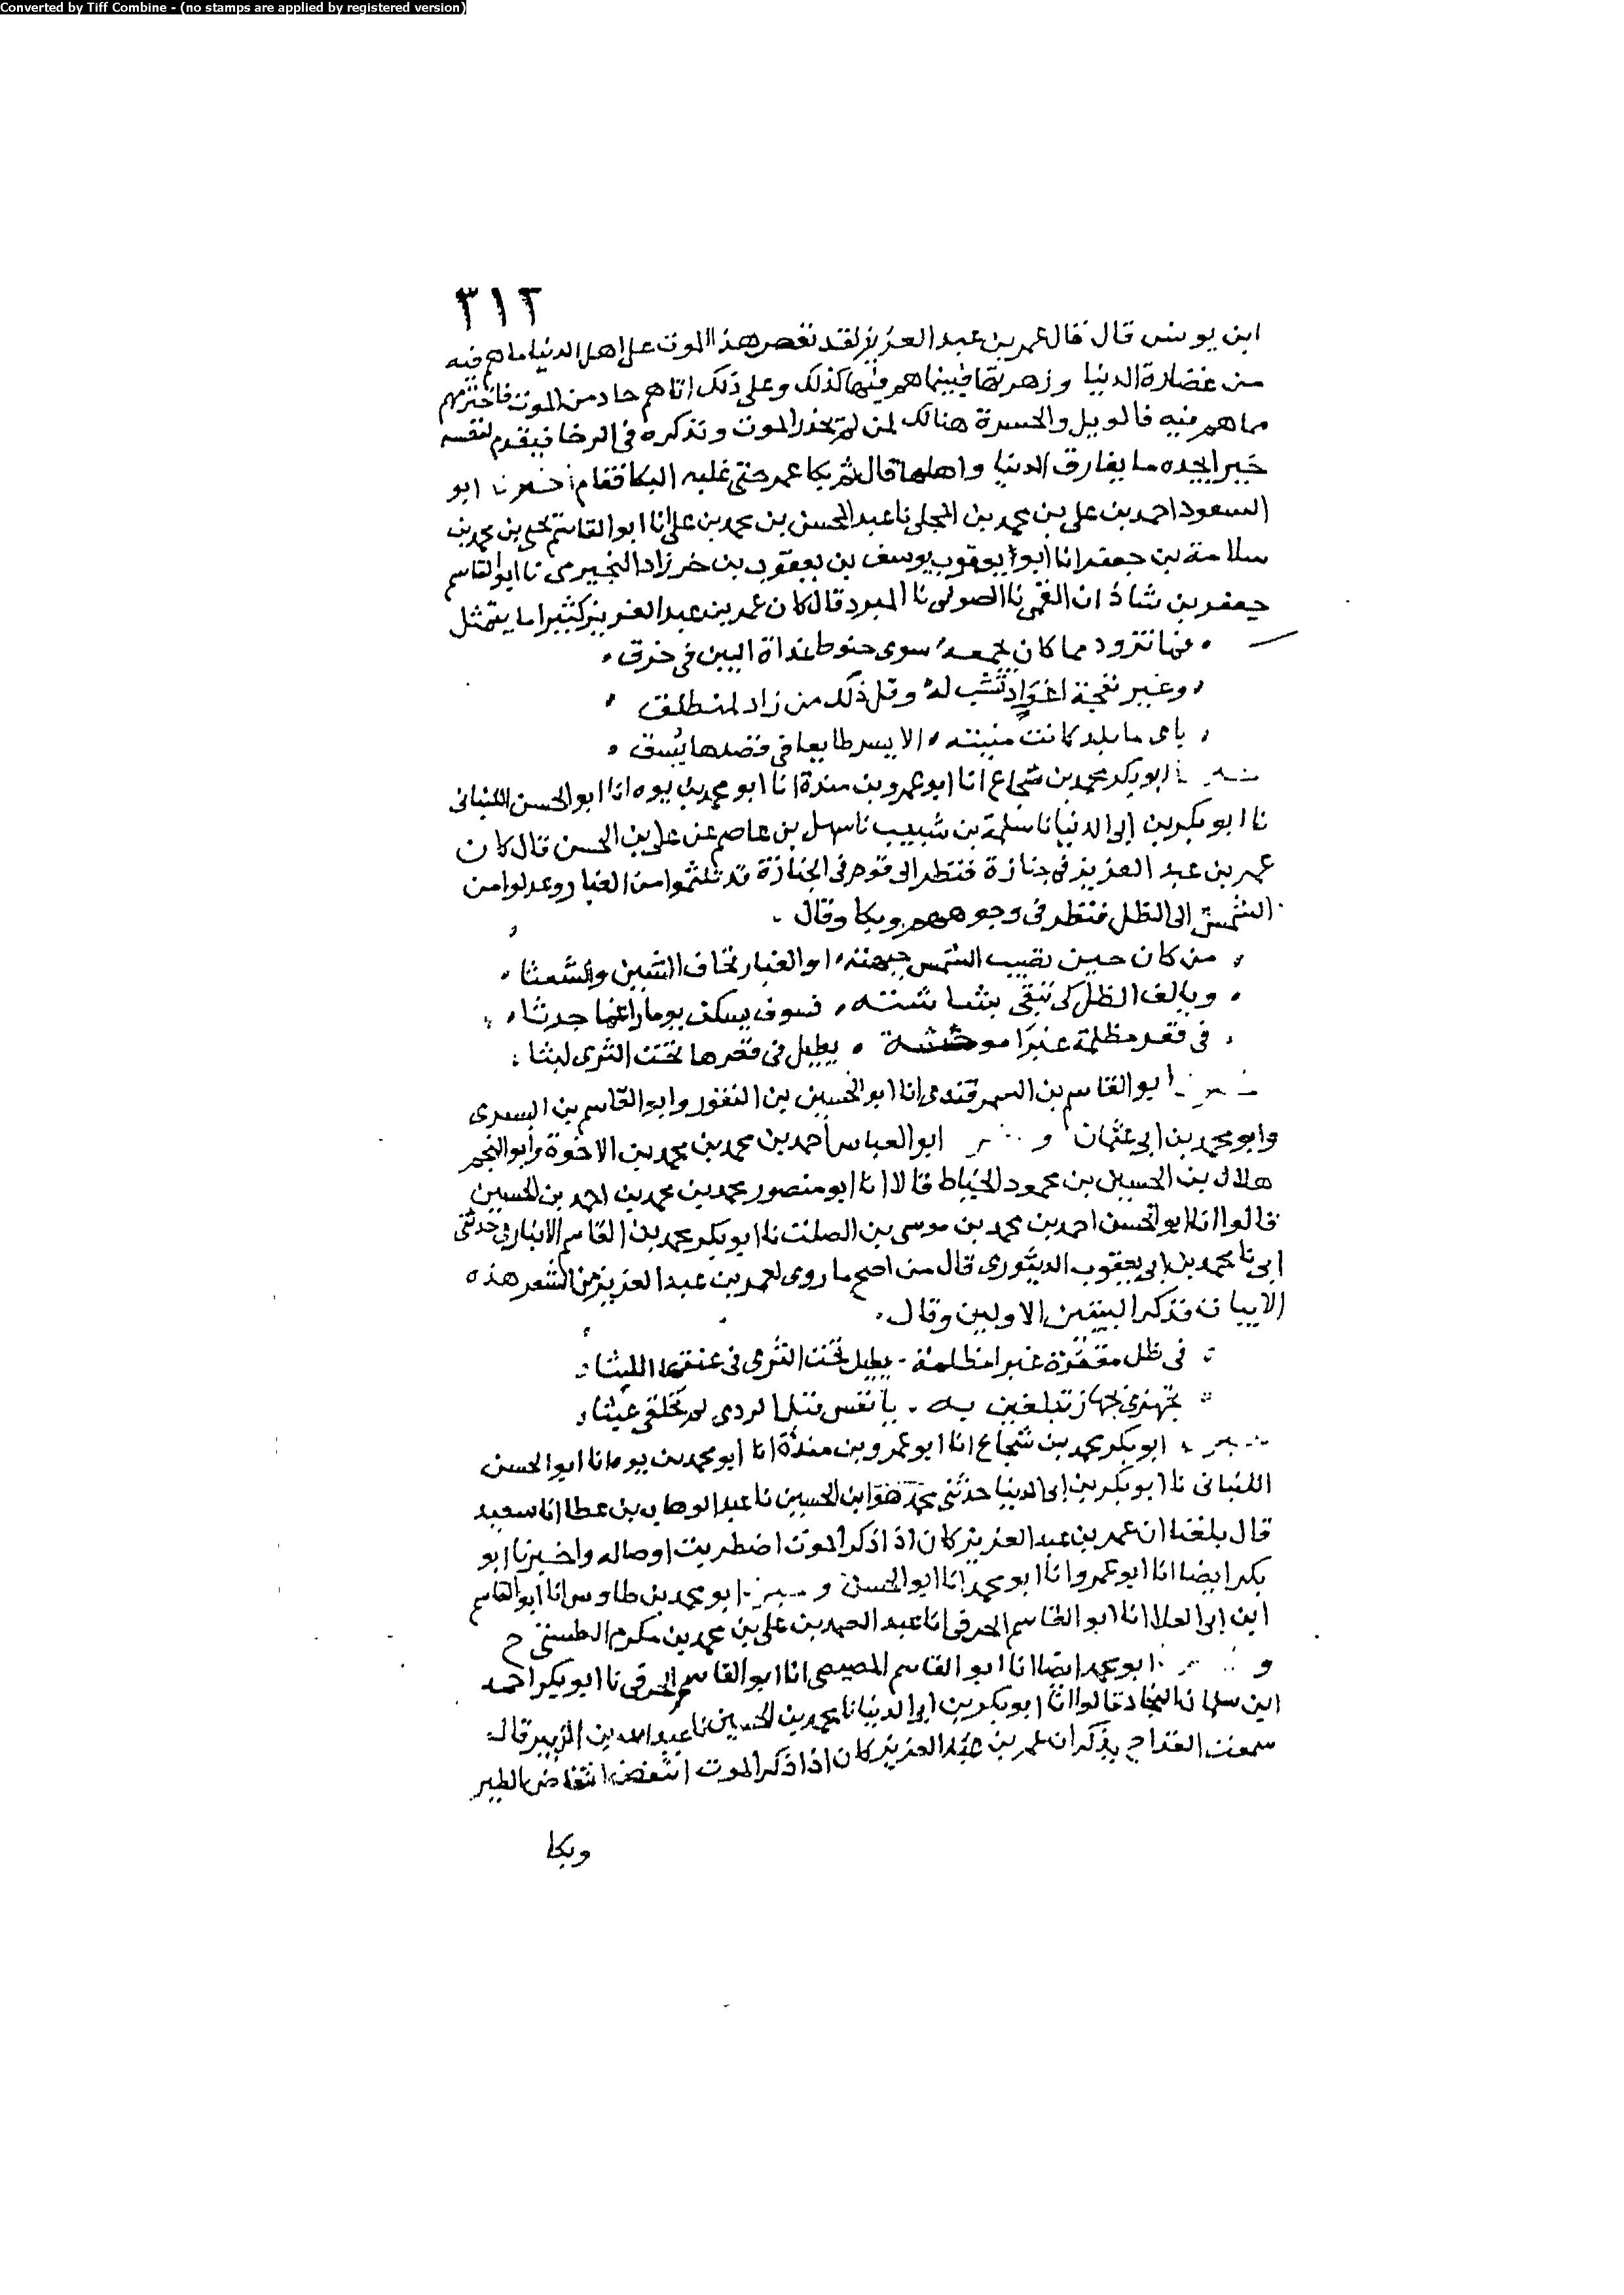 Converted by Tiff Combine - (no stamps are applied by registered version)
٣١٢
ابن يونس قال قال عمر بن عبد العزيز لقد نغص هذا الموت على اهل الدنيا ما هم فيه
من غضارة الدنيا وزهرتها فبينما هم فيها كذلك وعلى ذلك اتاهم حاد من الموت فاخترمهم
مما هم فيه فالويل والحسرة هنالك لمن لم يحذر الموت وتذكره في الرخا فيقدم لنفسه
خيرا يجده ما يفارق الدنيا واهلها قال ثم بكا عمر حتى غلبه البكا فقام اخبرنا ابو
السعود احمد بن علي بن محمد بن المجلي نا عبد المحسن بن محمد بن علي انا ابو القاسم يحيى بن محمد بن
سلامة بن جعفر انا ابو يعقوب يوسف بن يعقوب بن خرزاد النجيرمي نا ابو القاسم
جعفر بن شاذان القمي نا الصولي نا المبرد قال كان عمر بن عبد العزيز كثيرا ما يتمثل
فما تزود مما كان يجمعه سوى حنوط غداة البين في خرق
وغير نفحة اعواد تشب له وقل ذلك من زاد لمنطلق
باي ما بلد كانت منيته الا يسر طايعا في قصدها يسق
ابو بكر محمد بن شجاع انا ابو عمرو بن مندة انا ابو محمد بن يوه انا ابو الحسن اللنباني
نا ابو بكر بن ابي الدنيا نا سلمة بن شبيب نا سهل بن عاصم عن علي بن الحسن قال كان
عمر بن عبد العزيز في جنازة فنظر الى قوم في الجنازة قد تلثموا من الغبار وعدلوا من
الشمس الى الظل فنظر في وجوههم وبكا وقال
من كان حين تصيب الشمس جبهته او الغبار يخاف الشين والشعثا
ويالف الظل كي تبقى بشاشته فسوف يسكن يوما راغما جدثا
في قعر مظلمة غبرا موحشة يطيل في قعرها تحت الثرى لبثا
ابو القاسم بن السمرقندي انا ابو الحسين بن النقور وابو القاسم بن البسري
وابو محمد بن ابي عثمان و ابو العباس احمد بن محمد بن محمد بن الاخوة وابو النجم
هلال بن الحسين بن محمود الخياط قالا انا ابو منصور محمد بن محمد بن احمد بن الحسين
قالوا انا ابو الحسن احمد بن محمد بن موسى بن الصلت نا ابو بكر محمد بن القاسم الانباري حدثني
ابي نا محمد بن ابي يعقوب الدينوري قال من اصح ما روى لعمر بن عبد العزيز من الشعر هذه
الابيات فذكر البيتين الاولين وقال
في ظل مقفرة غبرا مظلمة يطيل تحت الثرى في اللبثا
تجهزي بجهاز تبلغين به يا نفس قبل الردى لم تخلقي عبثا
ابو بكر محمد بن شجاع انا ابو عمرو بن مندة انا ابو محمد بن يوه انا ابو الحسن
اللنباني نا ابو بكر بن ابي الدنيا حدثني محمد هو ابن الحسين نا عبد الوهاب بن عطا انا سعيد
قال بلغنا ان عمر بن عبد العزيز كان اذا ذكر الموت اضطربت اوصاله واخبرنا ابو
بكر ايضا انا ابو عمرو انا ابو محمد انا ابو الحسن و ابو محمد بن طاوس انا ابو القاسم
ابن ابي العلا انا ابو القاسم الحرفي انا عبد الصمد بن علي بن محمد بن مكرم الطستي ح
و ابو محمد ايضا انا ابو القاسم المصيصي انا ابو القاسم الحرفي نا ابو بكر احمد
ابن سلمان النجاد قالوا انا ابو بكر بن ابي الدنيا نا محمد بن الحسين نا عبد الله بن الزبير قال
سمعت القداح يذكر ان عمر بن عبد العزيز كان اذا ذكر الموت انتفض انتفاض الطير
وبكا